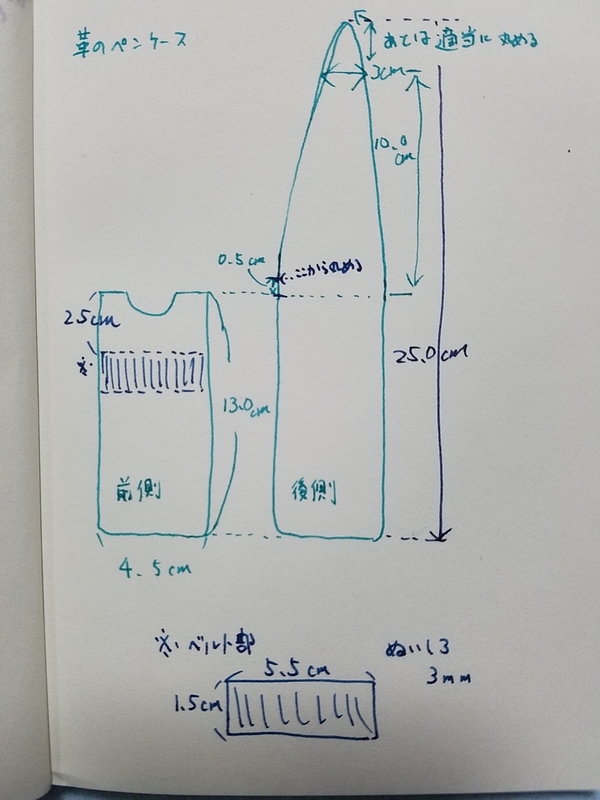 革のペンケース
あとは適当に丸める
3cm
10.0
cm
0.5cm
ここから丸める
2.5cm
※
25.0cm
13.0cm
前側
後側
4.5cm
※ベルト部
ぬいしろ
5.5cm
3mm
1.5cm